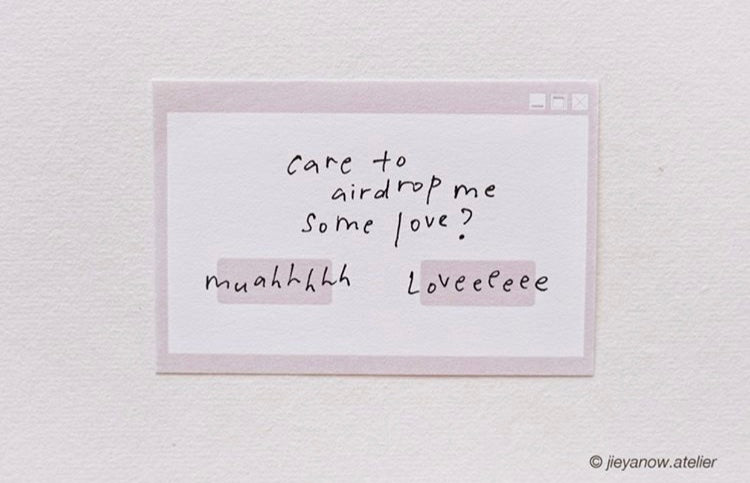 care to
airdrop me
some love?
muahhhhh Loveeeeee
© jieyanow.atelier